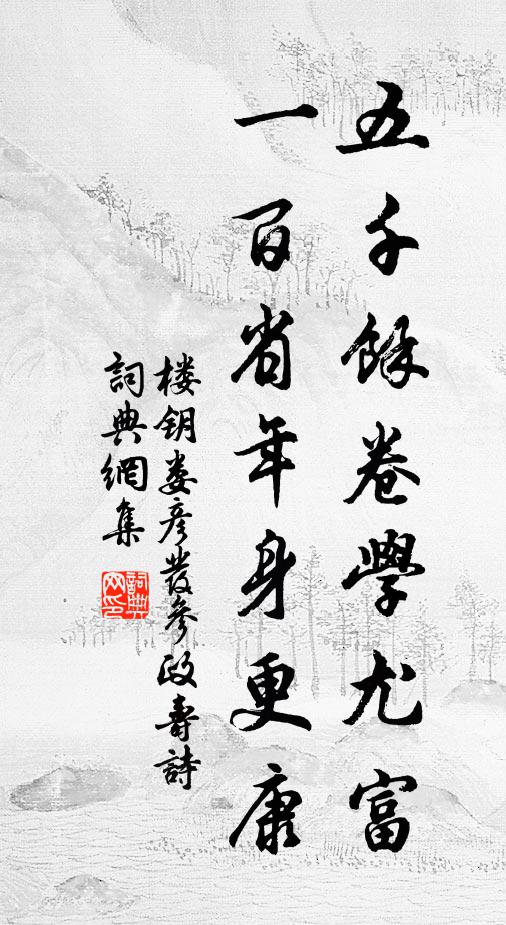 五千餘卷學尤富
一百省年身更康
楼钥娄彦發參政壽詩
詞典網集
詞典網印